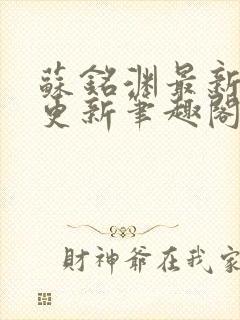 蘇銘淵最新
更新筆趣閣
財神爺在我家